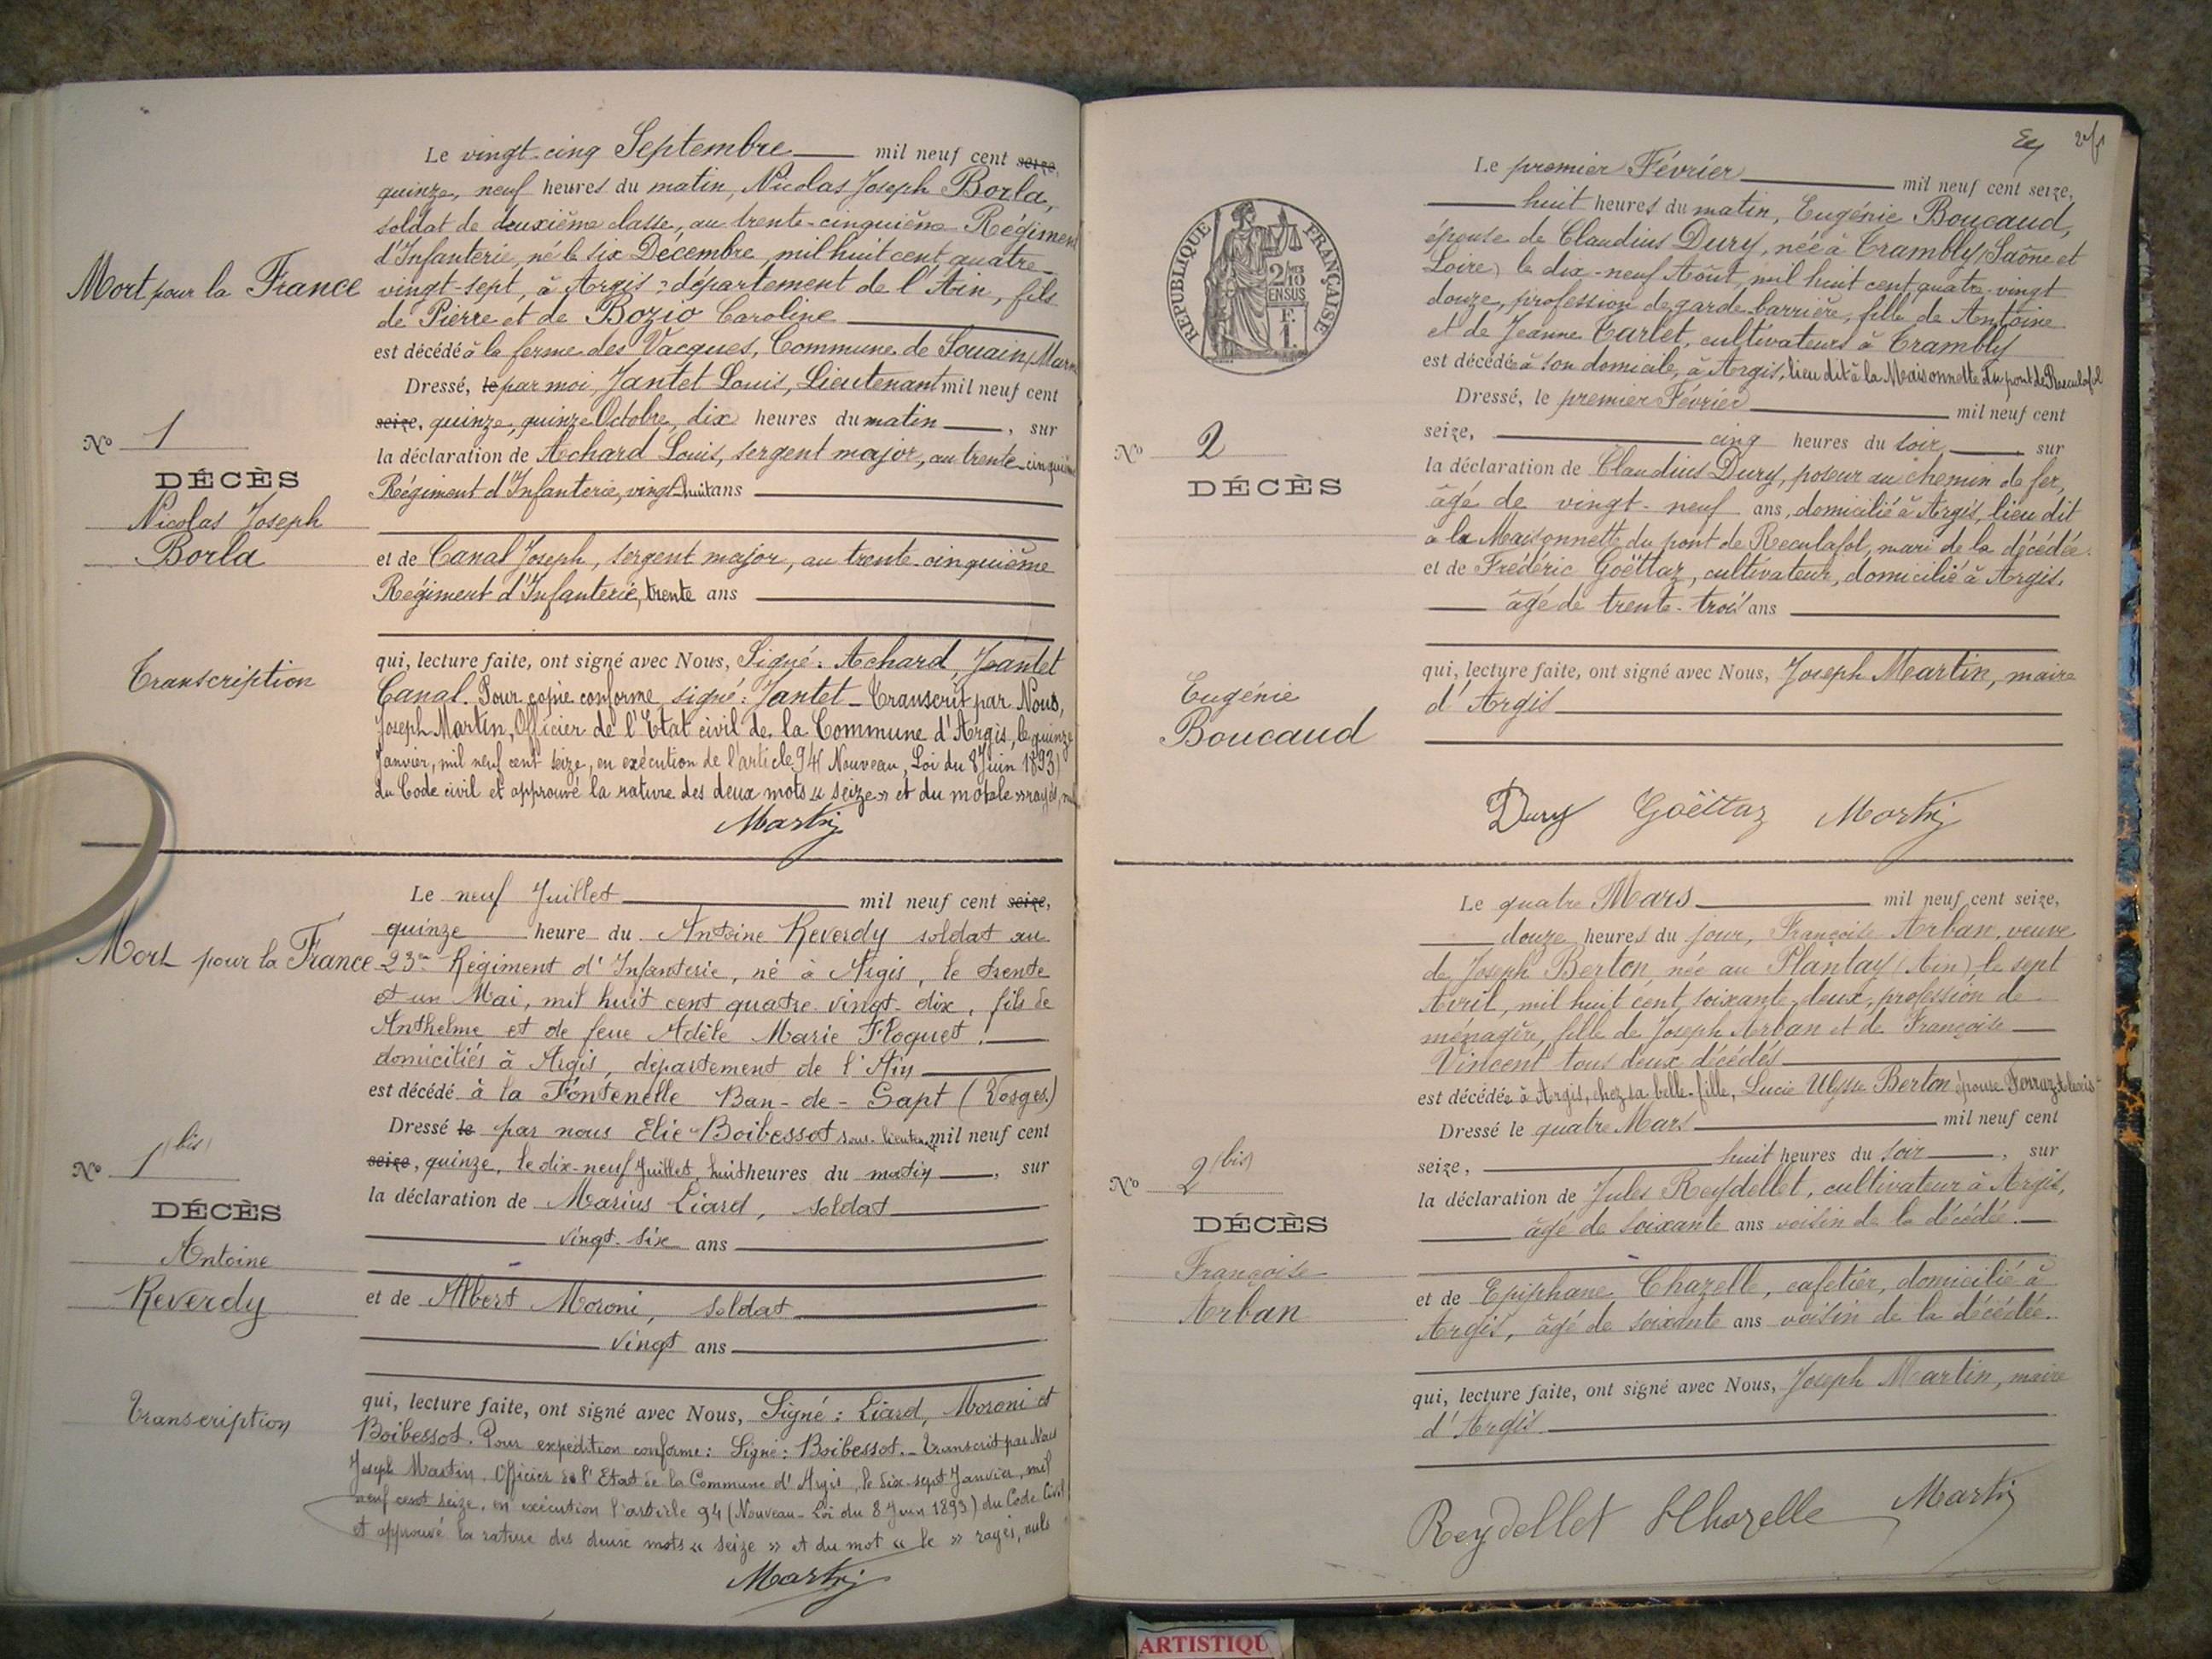 Le vingt-cinq Septembre mil neuf cent seize,
quinze, neuf heures du matin, Nicolas Joseph Borla,
soldat de deuxième classe, au trente-cinquième Régiment
d'Infanterie, né le six Décembre, mil huit cent quatre-
Mort pour la France
vingt-sept, à Argis, département de l'Ain, fils
de Pierre et de Bozio Caroline
est décédé à la ferme des Vacques, Commune de Souain (Marne
Dressé, le par moi Jantet Louis, Lieutenant mil neuf cent
seize, quinze, quinze Octobre, dix heures du matin, sur
la déclaration de Achard Louis, sergent major, au trente-cinquième
Régiment d'Infanterie, vingt-huit ans
No 1
DÉCÈS
Nicolas Joseph
Borla
et de Canal Joseph, sergent major, au trente-cinquième
Régiment d'Infanterie, trente ans
Transcription
qui, lecture faite, ont signé avec Nous, Signé: Achard, Jantet
Canal. Pour copie conforme signé: Jantet - Transcrit par Nous,
Joseph Martin, Officier de l'Etat civil de la Commune d'Argis, le quinze
Janvier, mil neuf cent seize, en exécution de l'article 94 (Nouveau, Loi du 8 Juin 1893)
du Code civil et approuvé la rature des deux mots « seize » et du mot « le » rayés, nuls
Martin
Le neuf Juillet mil neuf cent seize,
quinze heure du Antoine Reverdy soldat au
Mort pour la France
23me Régiment d'Infanterie, né à Argis, le trente
et un Mai, mil huit cent quatre-vingt-dix, fils de
Anthelme et de feue Adèle Marie Floquet,
domiciliés à Argis, département de l'Ain
est décédé à la Fontenelle Ban-de-Sapt (Vosges)
Dressé le par nous Elie Boibessot sous-lieuten. mil neuf cent
seize, quinze, le dix-neuf Juillet, huit heures du matin, sur
la déclaration de Marius Liard, soldat
vingt-six ans
No 1 (bis)
DÉCÈS
Antoine
Reverdy
et de Albert Moroni, soldat
vingt ans
Transcription
qui, lecture faite, ont signé avec Nous, Signé: Liard, Moroni et
Boibessot. Pour expédition conforme: Signé: Boibessot. - Transcrit par Nous
Joseph Martin, Officier de l'Etat de la Commune d'Argis, le dix-sept Janvier, mil
neuf cent seize, en exécution l'article 94 (Nouveau - Loi du 8 Juin 1893) du Code Civil
et approuvé la rature des deux mots « seize » et du mot « le » rayés, nuls
Martin
RÉPUBLIQUE FRANÇAISE
2/10 EN SUS
F. 1.
Le premier Février mil neuf cent seize,
huit heures du matin, Eugénie Boucaud,
épouse de Claudius Dury, née à Trambly (Saône et
Loire) le dix-neuf Août, mil huit cent quatre-vingt
douze, profession de garde barrière, fille de Antoine
et de Jeanne Carlet, cultivateurs à Trambly
est décédée à son domicile, à Argis, lieu dit à la Maisonnette du pont de Reculafol
Dressé, le premier Février mil neuf cent
seize, cinq heures du soir, sur
la déclaration de Claudius Dury, poseur au chemin de fer,
âgé de vingt-neuf ans, domicilié à Argis, lieu dit
à la Maisonnette du pont de Reculafol, mari de la décédée.
et de Frédéric Goëttaz, cultivateur, domicilié à Argis,
âgé de trente-trois ans
No 2
DÉCÈS
Eugénie
Boucaud
qui, lecture faite, ont signé avec Nous, Joseph Martin, maire
d'Argis
Dury Goëttaz Martin
Le quatre Mars mil neuf cent seize,
douze heures du jour, Françoise Arban, veuve
de Joseph Berton, née au Plantay (Ain), le sept
Avril, mil huit cent soixante-deux, profession de
ménagère, fille de Joseph Arban et de Françoise
Vincent tous deux décédés
est décédée à Argis, chez sa belle-fille, Lucie Ulysse Berton épouse
Dressé le quatre Mars mil neuf cent
seize, huit heures du soir, sur
la déclaration de Jules Reydellet, cultivateur à Argis,
âgé de soixante ans voisin de la décédée.
No 2 (bis)
DÉCÈS
Françoise
Arban
et de Epiphane Chazelle, cafetier, domicilié à
Argis, âgé de soixante ans voisin de la décédée.
qui, lecture faite, ont signé avec Nous, Joseph Martin, maire
d'Argis
Reydellet Chazelle Martin
ARTISTIQU